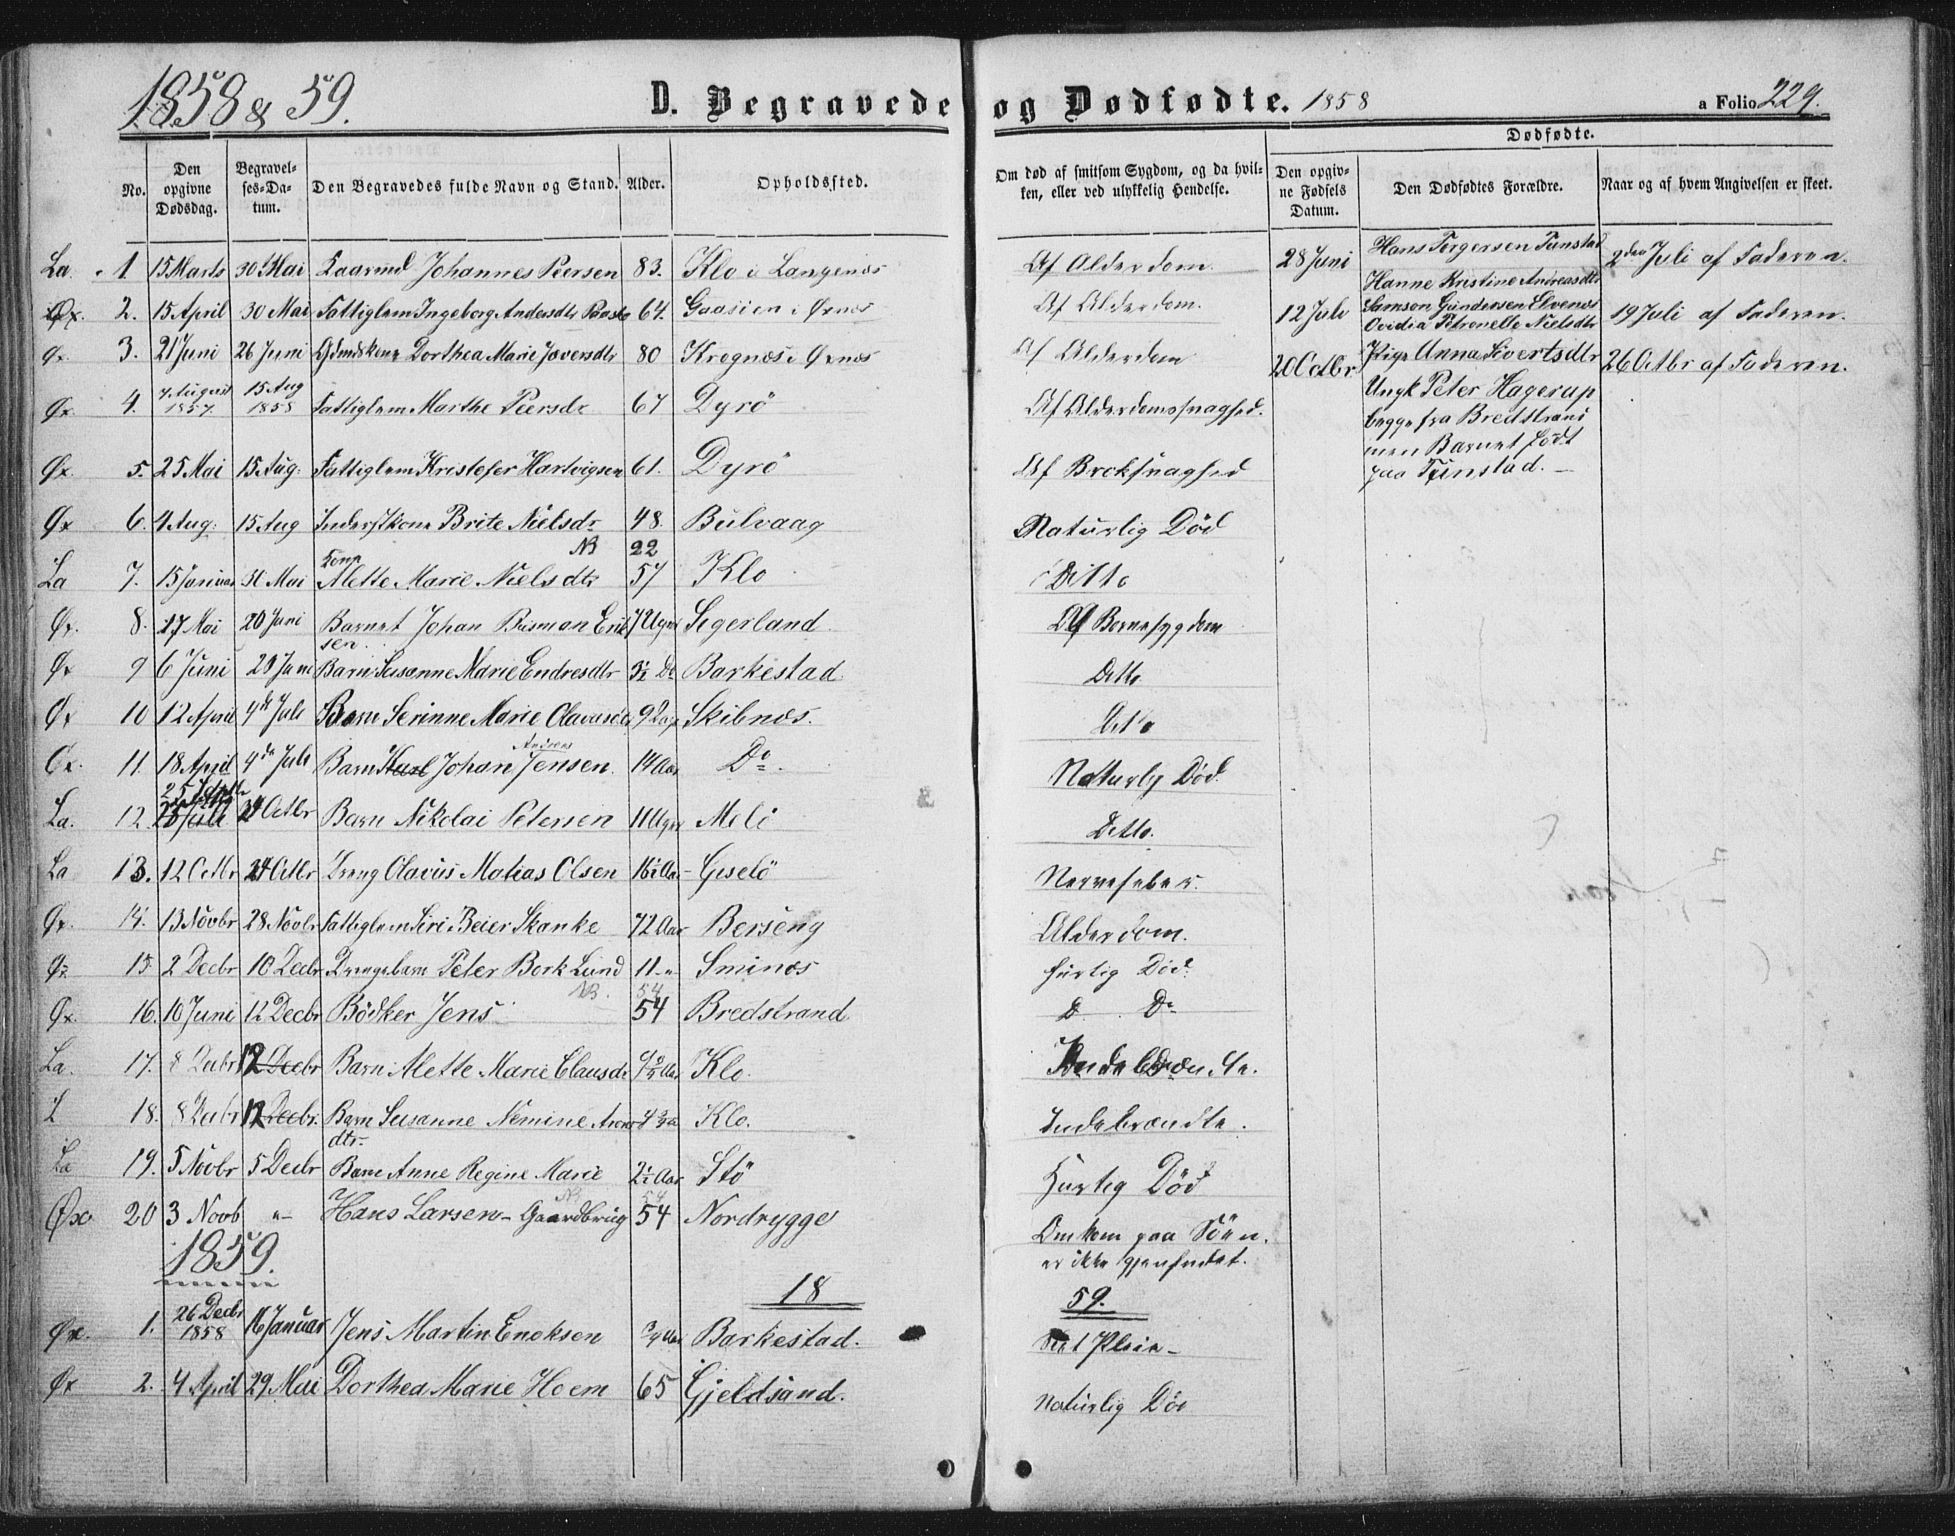 1858 & 59. D. Begravede og Dødfødte. 1858 a Folio 229.
Dødfødte.
No. Den opgivne Dødsdag. Begravelses-Datum. Den Begravedes fulde Navn og Stand. Alder. Opholdssted. Om død af smitsom Sygdom, og da hvilken, eller ved ulykkelig Hendelse. Den opgivne Fødsels Datum. Den Dødfødtes Forældre. Naar og af hvem Angivelsen er skeet.
La. 1 15 Marts 30 Mai Johannes Peersen 83. Klo i Langenæs Af Alderdom. 28 Juni Hans Torgersen Tunstad 2den Juli af Faderen.
Hanne Kristine Andreasdtr
Øx. 2. 15 April 30 Mai Fattiglem Ingeborg Andersdtr 64. Gaasien i Øxnæs Af Alderdom. 12 Juli Samson Gundersen Elvenæs 19 Juli af Faderen.
Ovidia Petronelle Nielsdtr
Øx. 3. 21 Juni 26 Juni Dorthea Marie Joversdtr 80 Krognæs i Øxnæs Af Alderdom 20 Octbr Pige Anna Sivertsdtr 26 Octbr af Faderen.
Øx. 4. 7 August 1857. 15 Aug 1858 Fattiglem Marthe Peersdr 67 Dyrö Af Alderdomssvaghed. Ungk Peter Hagerup
begge fra Bredstrand
men Barnet født
paa Tunstad. –
Øx. 5. 25 Mai 15 Aug: Fattiglem Kristofer Hartvigsen 61. Dyrö Af Brøksvaghed
Øx 6. 4 Aug: 15 Aug Inderstkone Brite Nielsdr 48. Bulvaag Naturlig Død
NB 22
La 7. 15 Januar 30 Mai Kone Mette Marie Nielsdtr 57 Klo Ditto
Øx. 8. 17 Mai 20 Juni Barnet Johan Busman Eriksen 7 Uger Segerland Af Bornesygdom
Øx 9 6 Juni 20 Juni Barn Susanne Marie Endresdtr 3½ Do Barkestad Ditto
Øx 10 12 April 4de Juli Barn Serinne Marie Olavasdtr 9 Dage Skibnæs. Ditto
Øx. 11. 18 April 4de Juli Barn Karl Johan Andreas Jensen 14 Aar Do. Naturlig Død.
La. 12 25 Juli 24 Octbr Barn Nikolai Petersen 11 Uger Melö Ditto.
La 13. 12 Octbr 24 Octbr Dreng Olavus Matias Olsen 16½ Aar Giselö Nervefeber.
Øx. 14. 13 Novbr 28 Novbr Fattiglem Siri Beier Skanke 72 Aar Berseng Alderdom.
Øx 15 2 Decbr 10 Decbr Drengebarn Peter Bork Lund 11 " Sminæs hurtig Død.
NB. 54
Øx. 16. 10 Juni 12 Decbr Bödker Jens 54 Bredstrand D. Do
La. 17. 8 Decbr 12 Decbr Barn Mette Marie Clausdr Klo. Indebrændte.
L 18. 8 Decbr 12 Decbr. Barn Susanne Nimine Aronsdtr Klo. Indebrændte.
La 19. 5 Novbr 5 Decbr Barn Anne Regine Marie 2½ Aar Stö Hurtig Død
NB 54
Øx 20 3 Novb "– Hans Larsen – Gaardbrug 54 Nordrygge Omkom paa Søen.
er ikke gjenfundet.
1859.
18 59.
Øx. 1. 26 Decbr 1858 16 Januar Jens Martin Enoksen Barkestad.
Øx 2. 4 April 29 Mai Dorthea Marie Hoem 65 Gjeldsand. Naturlig Død